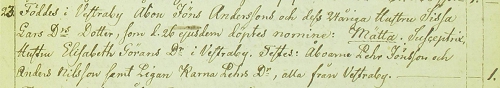 23. Föddes i Västraby Åbon Jöns Anderssons och dess Wäriga Hustru Sissa
Lars Drs Dotter, som d. 26 ejusdem döptes nomine: Matta. Susceptrix,
Hustru Elisabeth Jörans Dr i Västraby. Testes: Åboarne Pehr Jönsson och
Anders Nilsson samt Pigan Karna Pehrs Dr, alla från Västraby. 1.